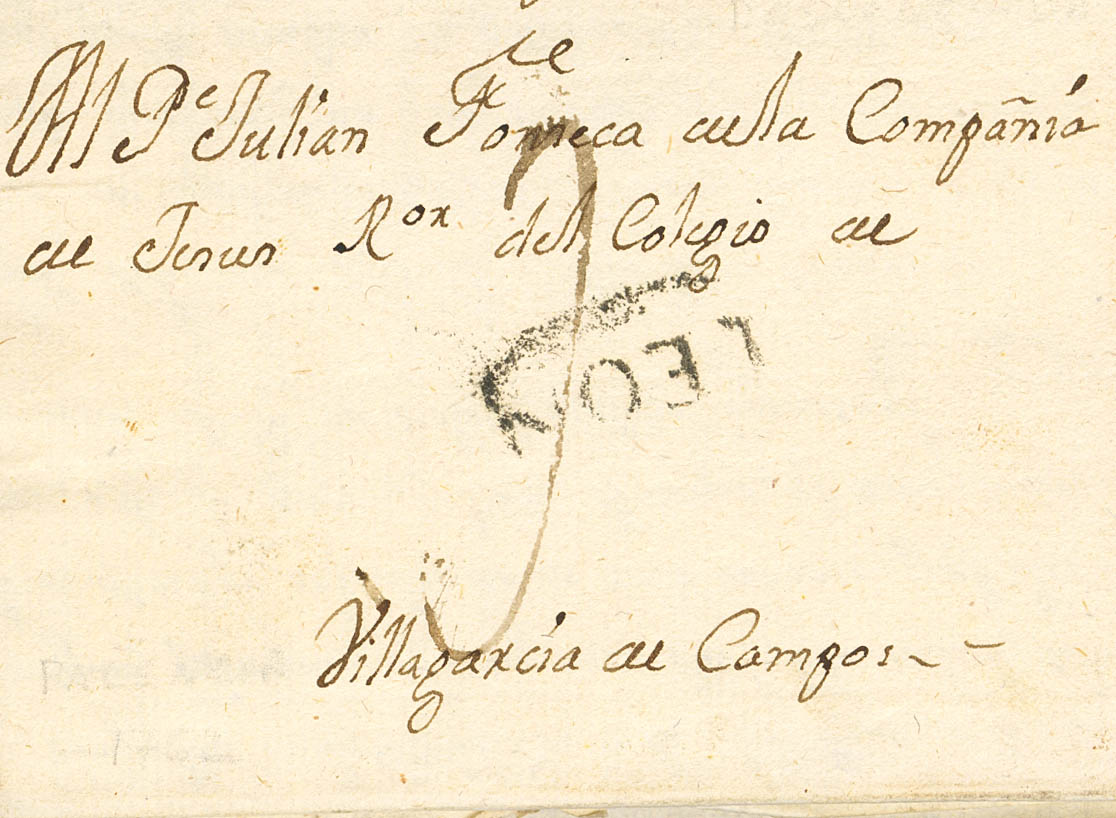 Al P.e Julian Fonseca de la Compañía
de Jesus R.or del Colegio de
LEON
Villagarcía de Campos